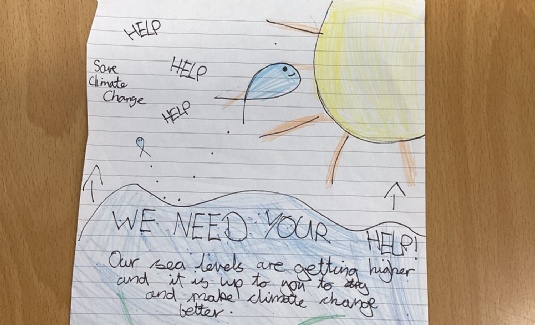 HELP
HELP
Save
Climate
Change
HELP
WE NEED YOUR
HELP!
Our sea levels are getting higher
and it is up to you to
and make climate change
better.